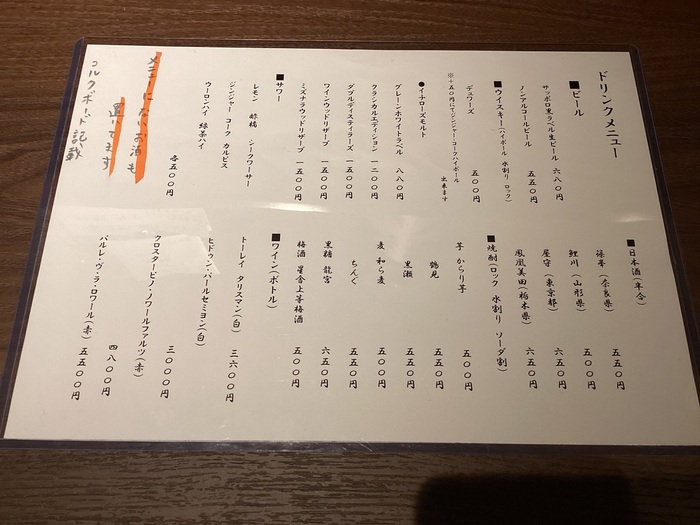 ドリンクメニュー
■ビール
サッポロ黒ラベル生ビール 六八〇円
ノンアルコールビール 五五〇円
■ウイスキー(ハイボール 水割り ロック)
デュワーズ 五〇〇円
※+五〇円にてジンジャー・コークハイボール
出来ます
●イチローズモルト
グレーンホワイトラベル 八八〇円
クラシカルエディション 一二〇〇円
ダブルディスティラーズ 一五〇〇円
ワインウッドリザーブ 一五〇〇円
ミズナラウッドリザーブ 一五〇〇円
■サワー
レモン 酢橘 シークワーサー
ジンジャー コーク カルピス
ウーロンハイ 緑茶ハイ
各五〇〇円
■日本酒(半合)
篠峯(奈良県) 五五〇円
鯉川(山形県) 五〇〇円
屋守(東京都) 六五〇円
鳳凰美田(栃木県) 六五〇円
■焼酎(ロック 水割り ソーダ割)
芋 からり芋 五〇〇円
鶴見 五五〇円
黒瀬 五五〇円
麦 和ら麦 五〇〇円
ちんぐ 五五〇円
黒糖 龍宮 六五〇円
梅酒 星舎上等梅酒 五〇〇円
■ワイン(ボトル)
トーレイ タリスマン(白) 三六〇〇円
ヒドゥン・パールセミヨン(白)
三〇〇〇円
クロスターピノ・ノワールファルツ(赤)
四八〇〇円
パルレ・ヴ・ラ・ロワール(赤) 五五〇〇円
メニューにないお酒も
置いてます
コルクボード記載